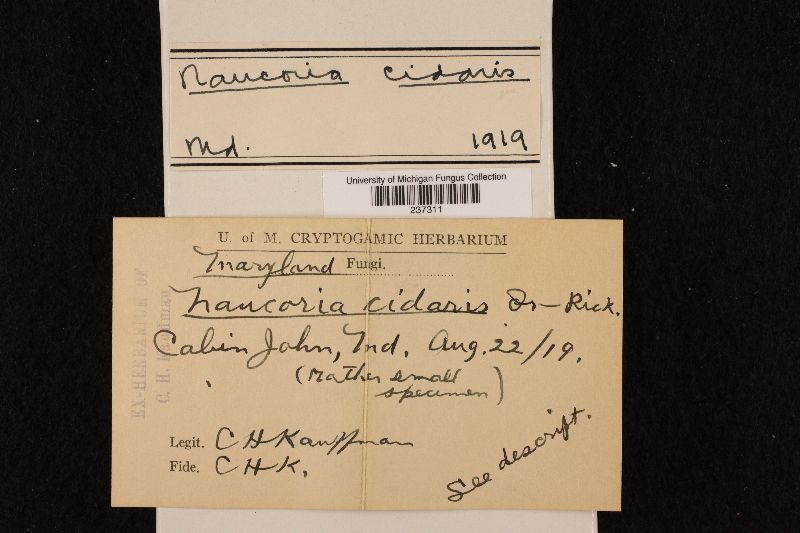 Naucoria cidaris
Md. 1919
University of Michigan Fungus Collection
237311
U. of M. CRYPTOGAMIC HERBARIUM
Maryland Fungi.
Naucoria cidaris Fr-Rick.
Cabin John, Md. Aug. 22/19.
(Rather small
specimen)
Legit. C H Kauffman
Fide. C H K.
See descript.
EX-HERBARIUM OF
C. H. Kauffman